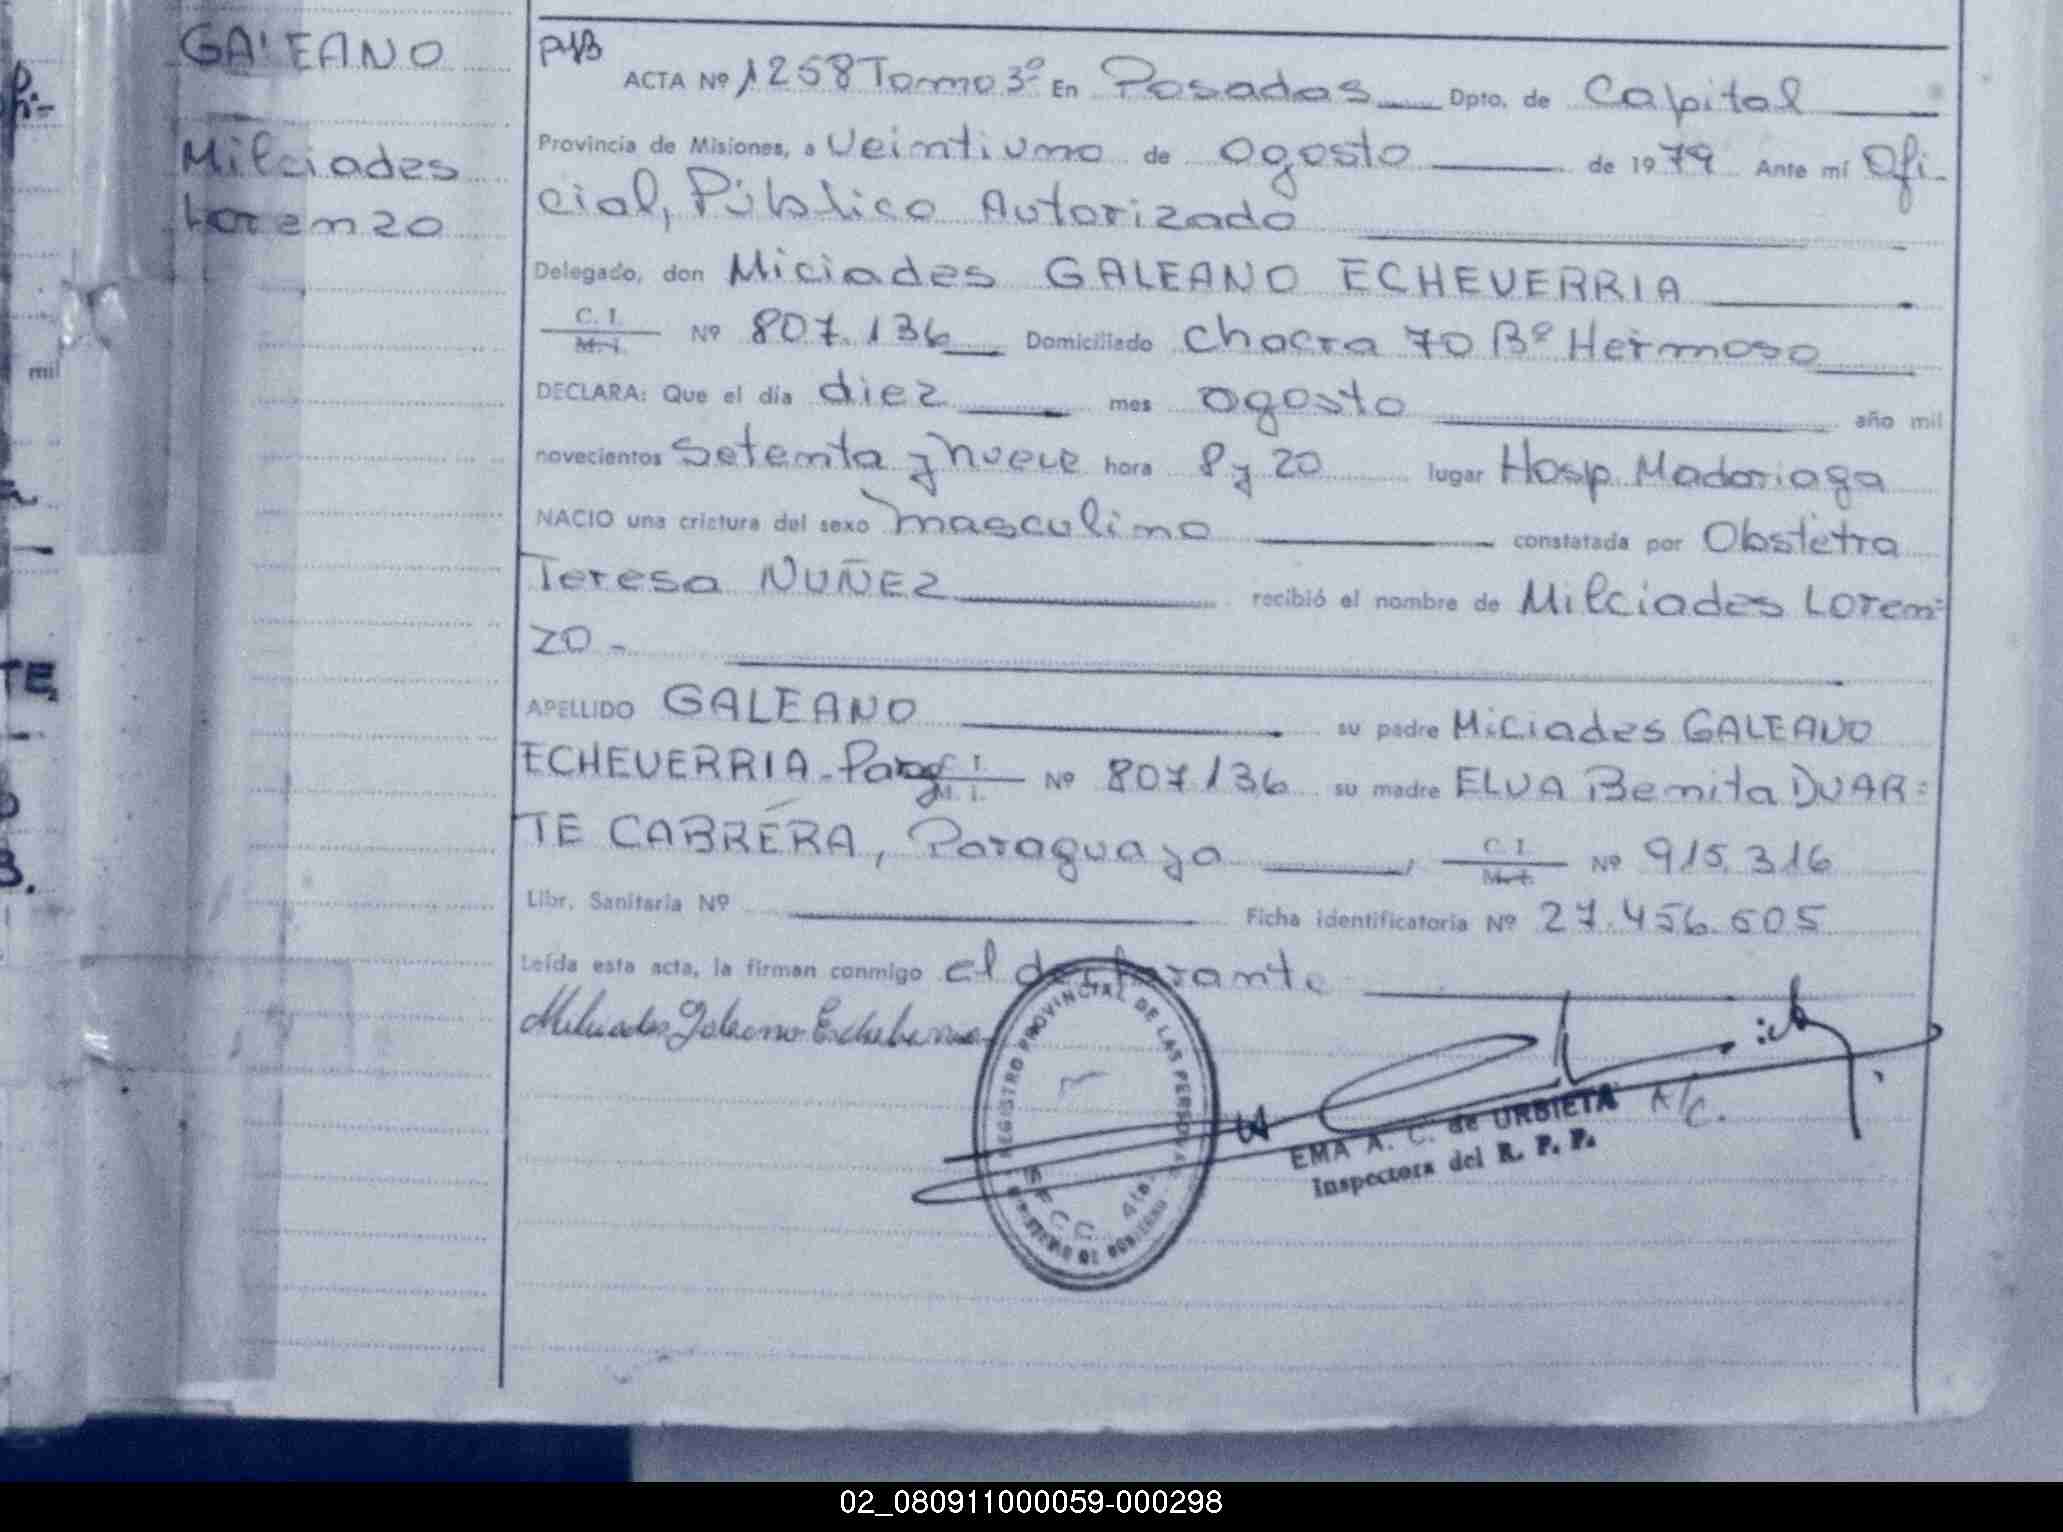 GALEANO
Milciades
Lorenzo
ACTA Nº 1258 Tomo 3º En Posadas Dpto. de Capital
Provincia de Misiones, a Veintiuno de agosto de 1979 Ante mí Ofi-
cial, Público Autorizado
Delegado, don Miciades GALEANO ECHEVERRIA
C. I.
M. I. Nº 807.136 Domiciliado Chacra 70 Bº Hermoso
DECLARA: Que el día diez mes agosto año mil
novecientos setenta y nueve hora 8 y 20 lugar Hosp. Madariaga
NACIO una criatura del sexo masculino constatada por Obstetra
Teresa NUÑEZ recibió el nombre de Milciades Loren=
zo -
APELLIDO GALEANO su padre Miciades GALEANO
ECHEVERRIA - Parag C. I.
M. I. Nº 807136 su madre ELVA Benita DUAR=
TE CABRERA, Paraguaya, C. I.
M. I. Nº 915.316
Libr. Sanitaria Nº Ficha identificatoria Nº 27.456.605
Leída esta acta, la firman conmigo el declarante
Milciades Galeano Echeberria
REGISTRO PROVINCIAL DE LAS PERSONAS
EMA A. C. de URBIETA A/C.
Inspectora del R. P. P.
mil
TE.
B.
02_080911000059-000298